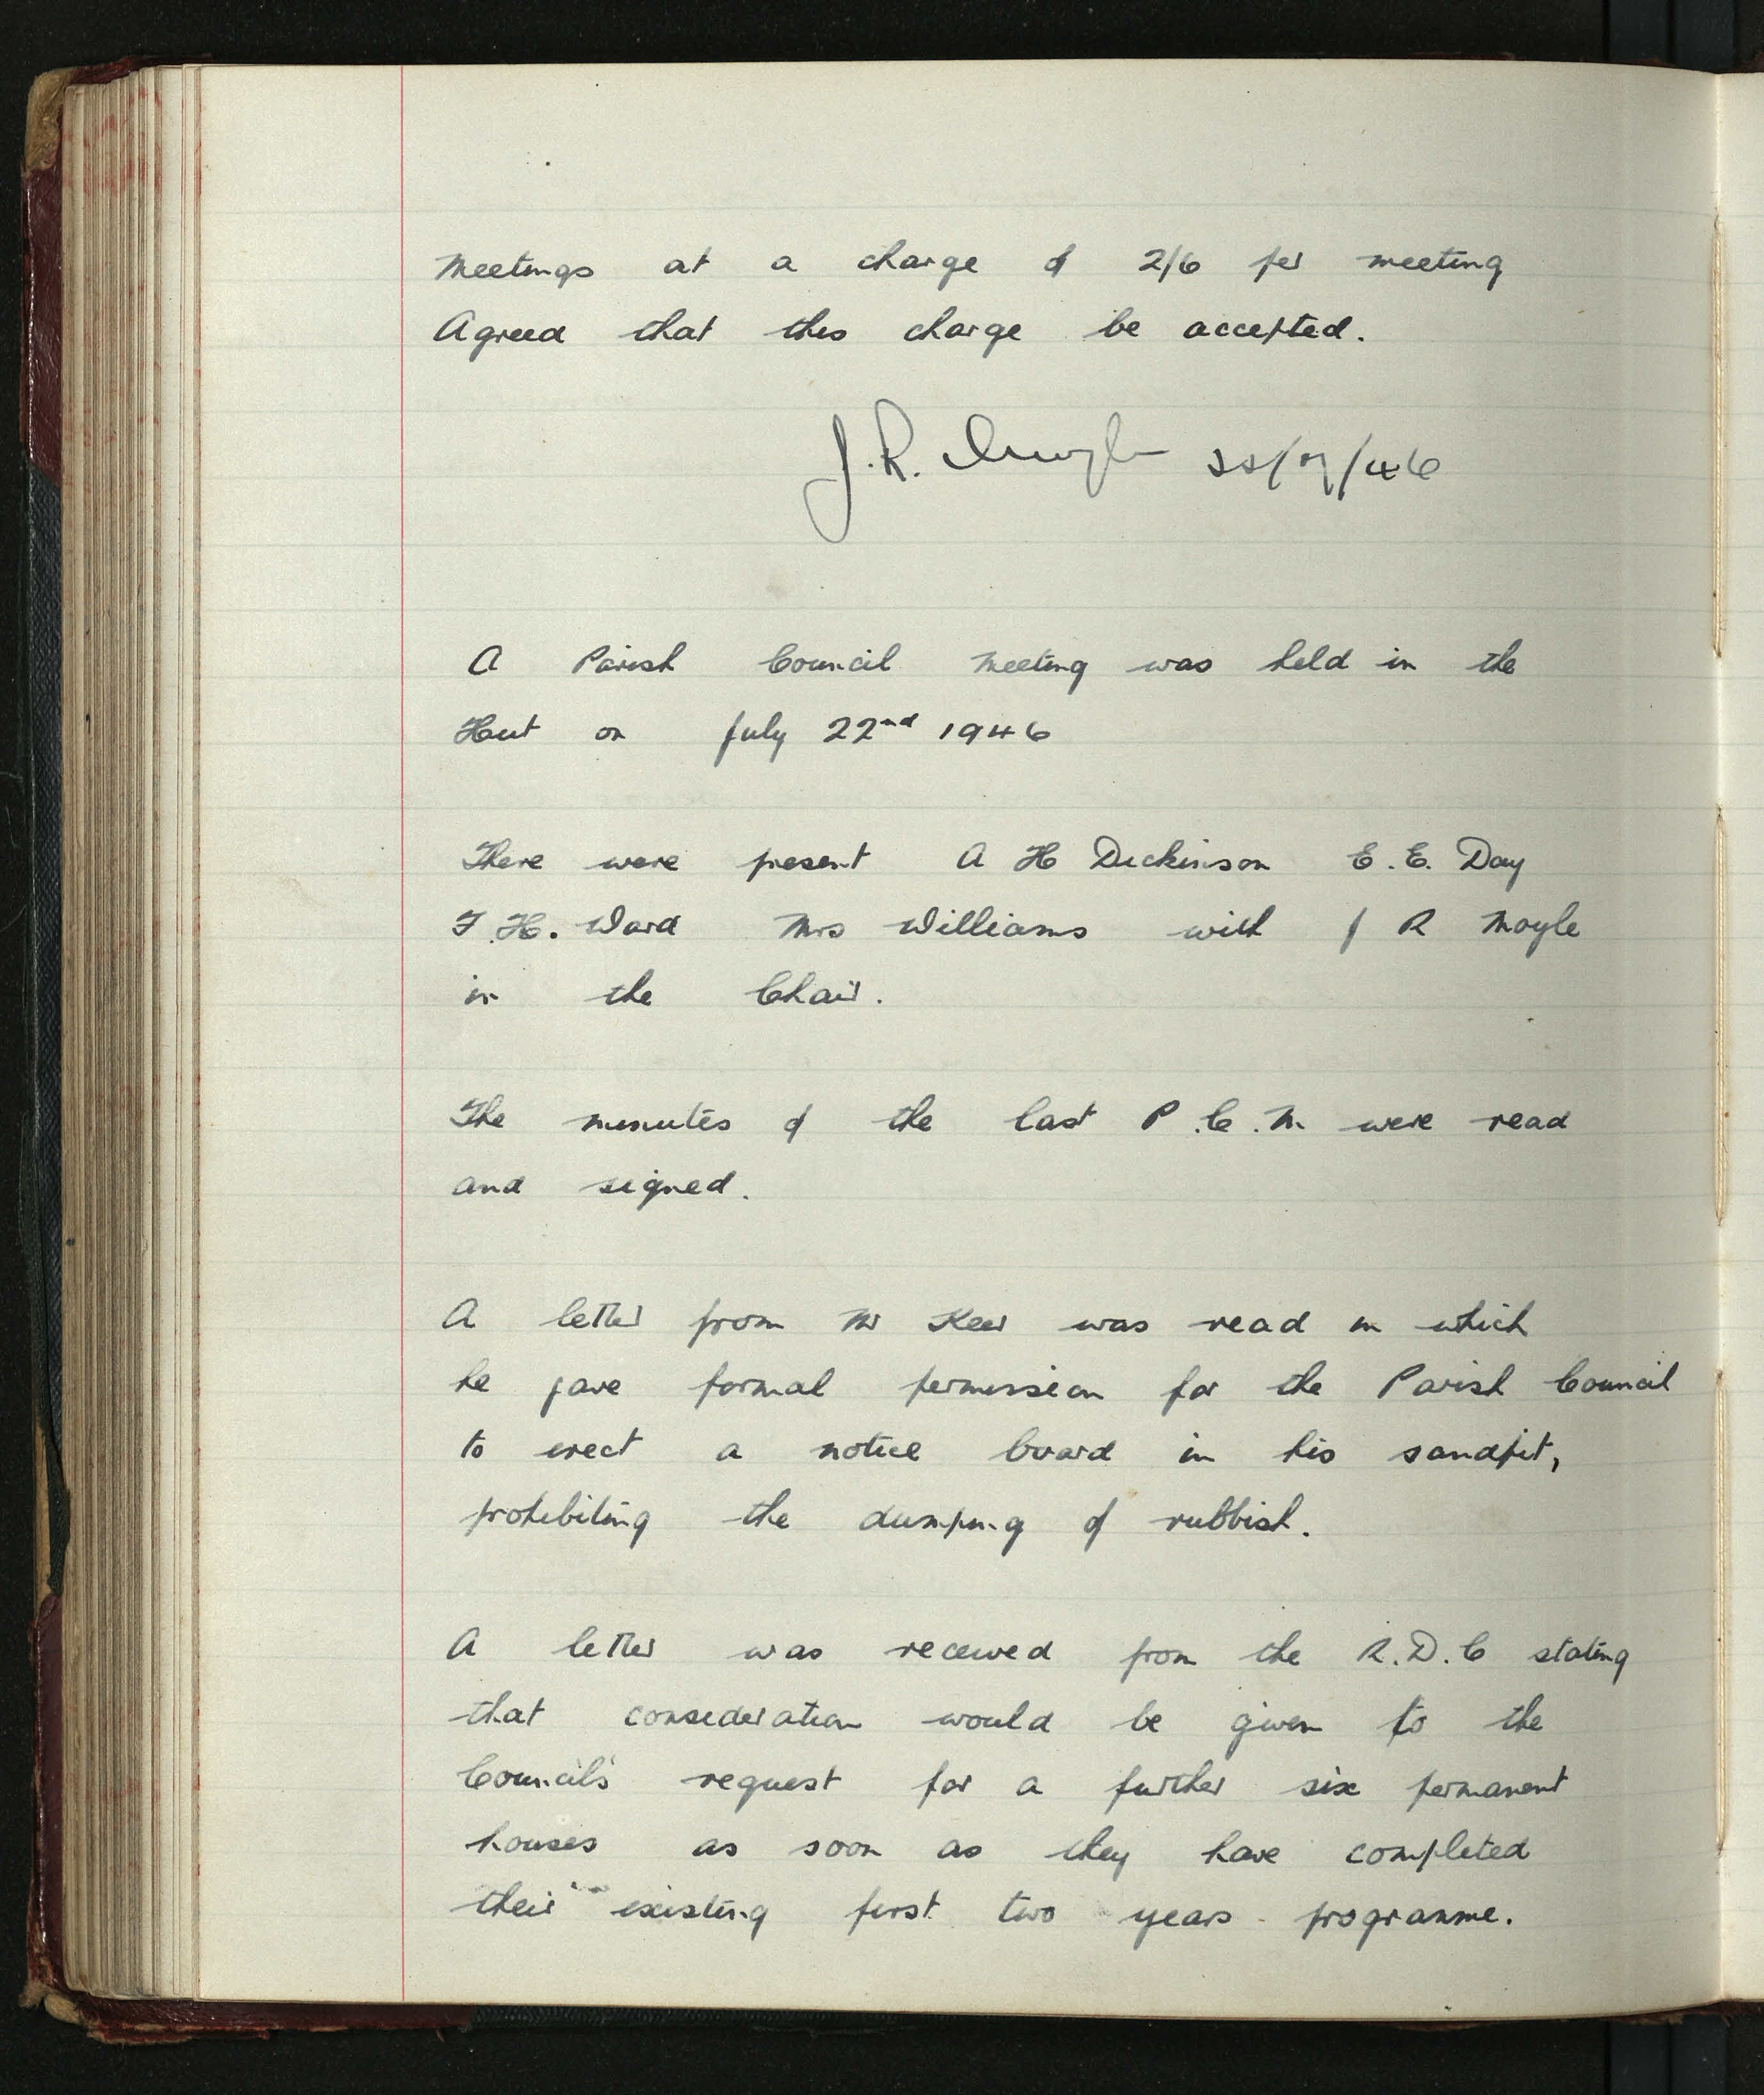 Meetings at a charge of 2/6 per meeting
Agreed that this charge be accepted.
J. R. Moyle 22/7/46
A Parish Council Meeting was held in the
Hut on July 22nd 1946
There were present A H Dickinson E. E. Day
F. H. Ward Mrs Williams with J R Moyle
in the Chair.
The minutes of the last P.C.M. were read
and signed.
A letter from Mr Keer was read in which
he gave formal permission for the Parish Council
to erect a notice board in his sandpit,
prohibiting the dumping of rubbish.
A letter was received from the R.D.C stating
that consideration would be given to the
Council's request for a further six permanent
houses as soon as they have completed
their existing first two years programme.